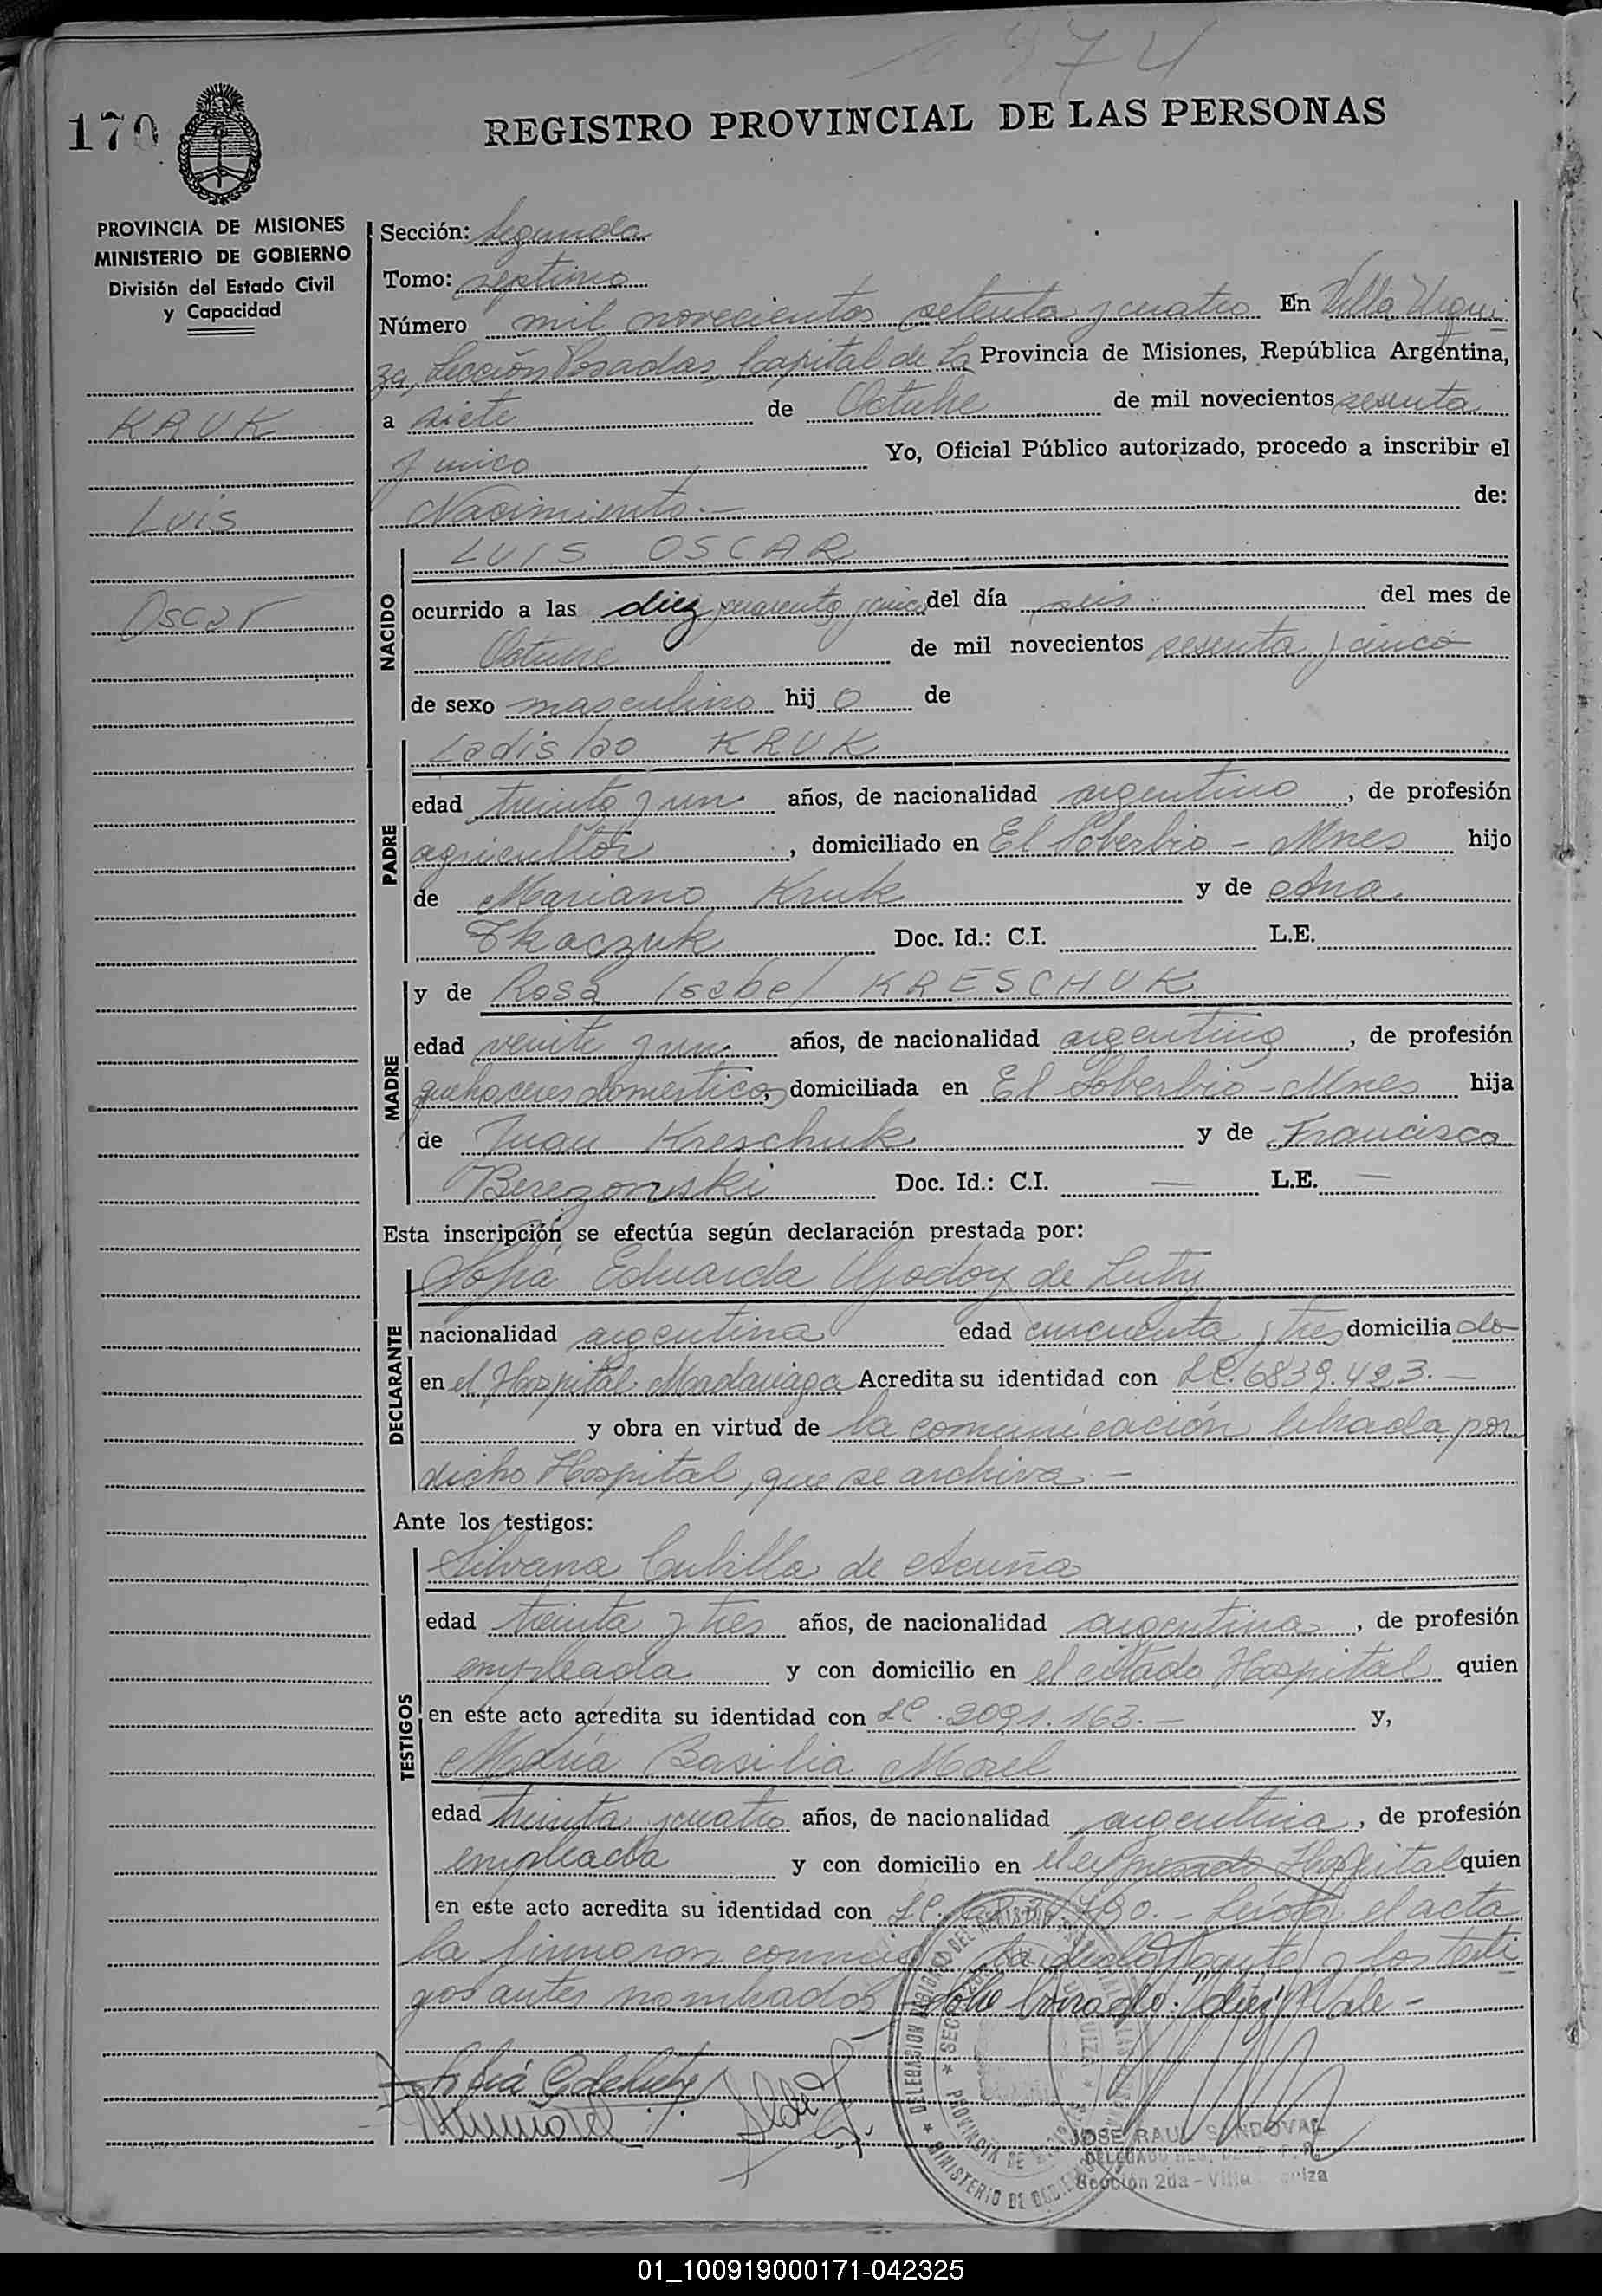 1974
170
REGISTRO PROVINCIAL DE LAS PERSONAS
PROVINCIA DE MISIONES
MINISTERIO DE GOBIERNO
División del Estado Civil
y Capacidad
KRUK
Luis
Oscar
Sección: Segunda
Tomo: septimo
Número mil novecientos setenta y cuatro En Villa Urqui
za, Sección Posadas, Capital de la Provincia de Misiones, República Argentina,
a siete de Octubre de mil novecientos sesenta
y cinco Yo, Oficial Público autorizado, procedo a inscribir el
Nacimiento.- de:
NACIDO
LUIS OSCAR
ocurrido a las diez cuarenta y cinco del día seis del mes de
Octubre de mil novecientos sesenta y cinco
de sexo masculino hij o de
PADRE
Ladislao KRUK
edad treinta y un años, de nacionalidad argentino, de profesión
agricultor, domiciliado en El Soberbio - Mnes hijo
de Mariano Kruk y de Ana
Tkaczuk Doc. Id.: C.I. L.E.
MADRE
y de Rosa Isabel KRESCHUK
edad veinte y un años, de nacionalidad argentina, de profesión
quehaceres domesticos, domiciliada en El Soberbio - Mnes hija
de Juan Kreschuk y de Francisca
Berezonski Doc. Id.: C.I. — L.E. —
Esta inscripción se efectúa según declaración prestada por:
DECLARANTE
Sofia Eduarda Godoy de Luty
nacionalidad argentina edad cincuenta y tres domicilia do
en el Hospital Madariaga Acredita su identidad con LC. 6839.423.-
y obra en virtud de la comunicación librada por
dicho Hospital, que se archiva.-
Ante los testigos:
TESTIGOS
Silvana Cubilla de Acuña
edad treinta y tres años, de nacionalidad argentina, de profesión
empleada y con domicilio en el citado Hospital quien
en este acto acredita su identidad con LC. 2091.163.- y,
María Basilia Morel
edad treinta y cuatro años, de nacionalidad argentina, de profesión
empleada y con domicilio en el expresado Hospital quien
en este acto acredita su identidad con LC. Leída el acta
la firmaron conmigo la declarante y los testi
gos antes nombrados - Sobre borrado: "diez" Vale -
JOSE RAUL SANDOVAL
Sección 2da - Villa
01_100919000171-042325